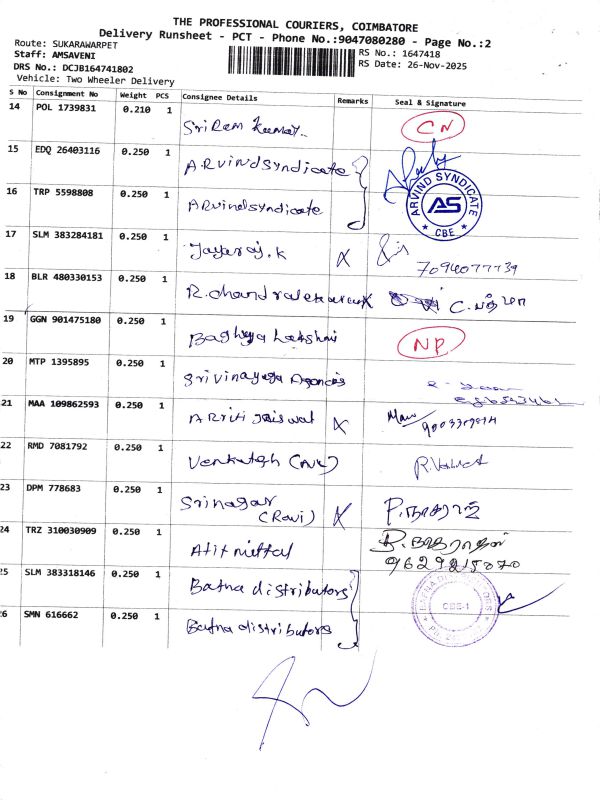 THE PROFESSIONAL COURIERS, COIMBATORE
Delivery Runsheet - PCT - Phone No.:9047080280 - Page No.:2
Route: SUKARAWARPET
Staff: AMSAVENI
RS No.: 1647418
DRS No.: DCJB164741802
RS Date: 26-Nov-2025
Vehicle: Two Wheeler Delivery
S No Consignment No Weight PCS Consignee Details Remarks Seal & Signature
14 POL 1739831 0.210 1
Sri Ram Kumar CN
15 EDQ 26403116 0.250 1
ARvind Syndicate
16 TRP 5598808 0.250 1
ARvind Syndicate
ARVIND SYNDICATE
AS
CBE
17 SLM 383284181 0.250 1
Jayaraj.K X
18 BLR 480330153 0.250 1
R.chandrasekaran X C. பத்மா
19 GGN 901475180 0.250 1
Baghya Lakshmi NP
20 MTP 1395895 0.250 1
Srivinayaga Agencies
21 MAA 109862593 0.250 1
Jaiswal X
22 RMD 7081792 0.250 1
Venkatesh
23 DPM 778683 0.250 1
Srinagar
(Ravi) X P. நாகராஜ்
24 TRZ 310030909 0.250 1
Ajit mittal
9629215070
25 SLM 383318146 0.250 1
Batna distributors
26 SMN 616662 0.250 1
Batna distributors
CBE-1